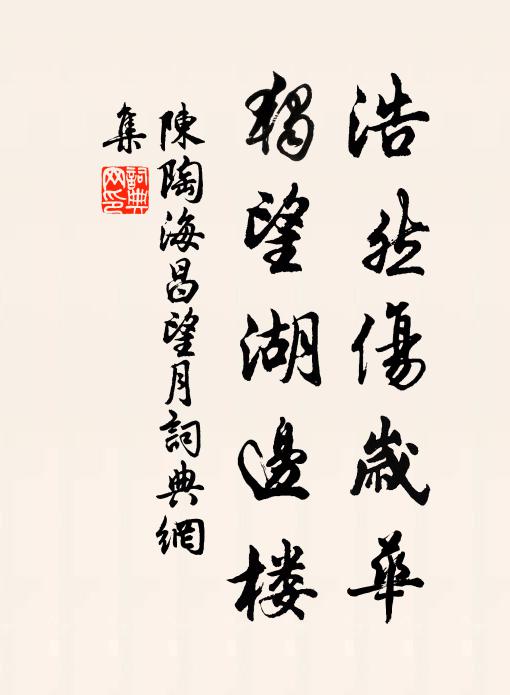 浩然傷歲華
獨望湖邊楼
陳陶海昌望月詞典網
集
詞典
网印